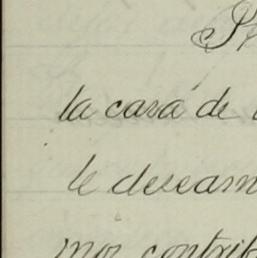 la casa de
le deseam
mos contrib